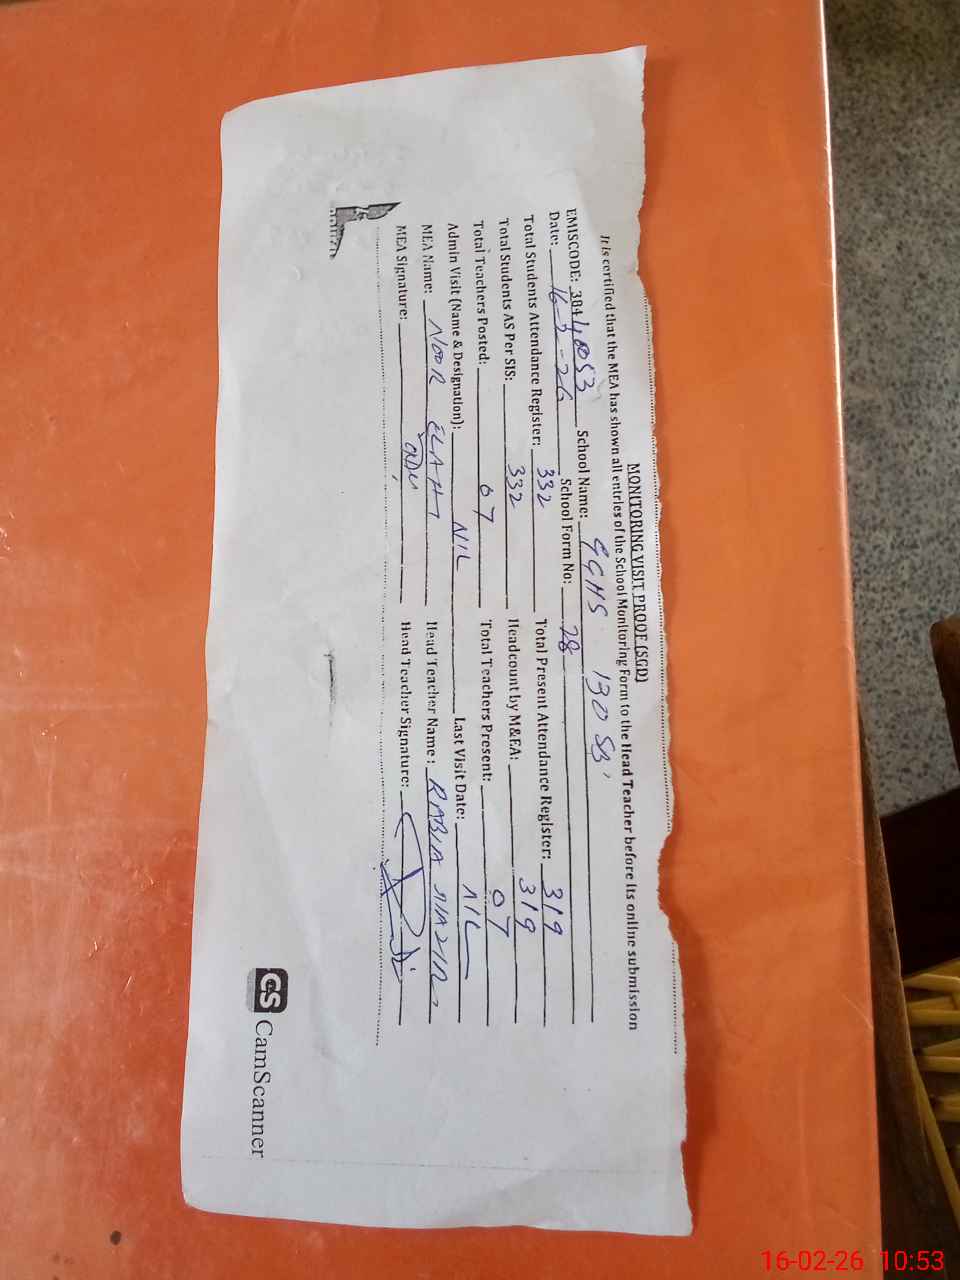 MONITORING VISIT PROOF (SGD)
It is certified that the MEA has shown all entries of the School Monitoring Form to the Head Teacher before its online submission
EMISCODE: 38440053 School Name: GGHS 130 SB
Date: 16-2-26 School Form No: 28
Total Students Attendance Register: 332 Total Present Attendance Register: 319
Total Students AS Per SIS: 332 Headcount by M&EA: 319
Total Teachers Posted: 07 Total Teachers Present: 07
Admin Visit (Name & Designation): NIL Last Visit Date: NIL
MEA Name: NOOR ELAHI Head Teacher Name: RABIA
MEA Signature: Head Teacher Signature:
CS CamScanner
16-02-26 10:53